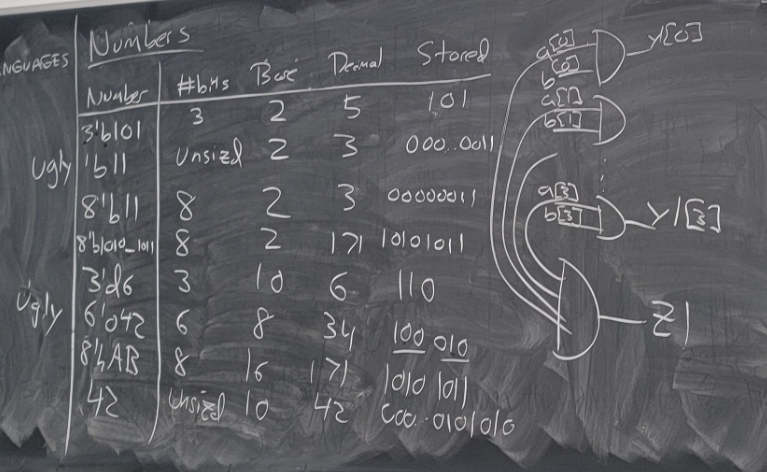 NGUAGES
Numbers
Number #bits Base Decimal Stored
3'b101 3 2 5 101
Ugly 'b11 Unsized 2 3 000..0011
8'b11 8 2 3 00000011
8'b1010_1011 8 2 171 10101011
3'd6 3 10 6 110
Ugly 6'o42 6 8 34 100 010
8'hAB 8 16 171 1010 1011
42 Unsized 10 42 000..0101010
a[0]
b[0]
y[0]
a[1]
b[1]
a[3]
b[3]
y1[3]
z1